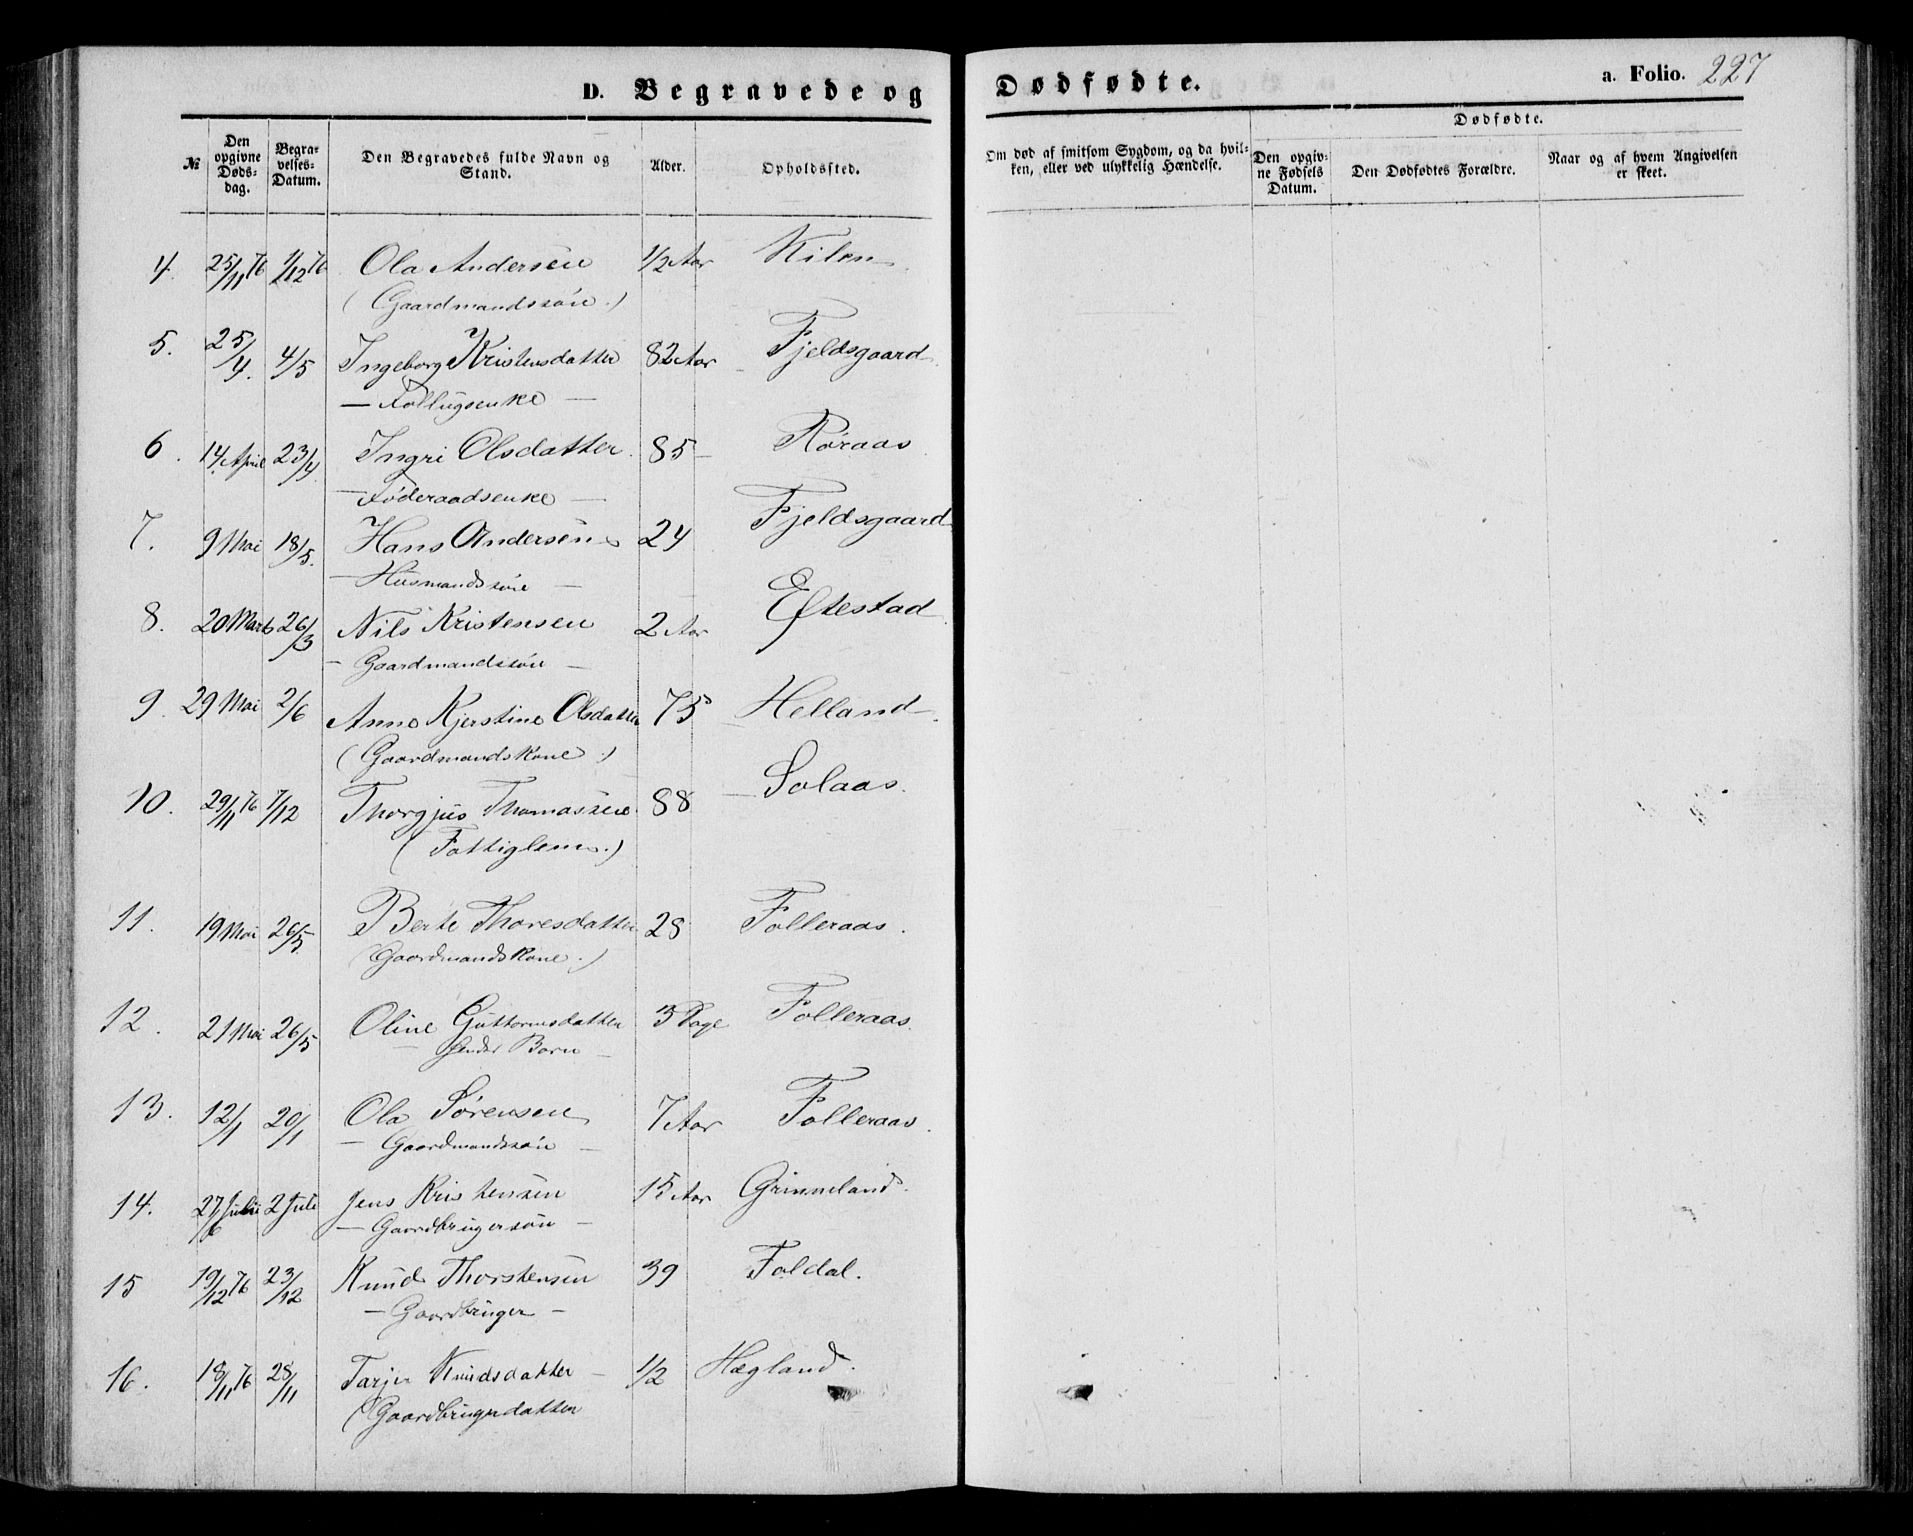 D. Begravede og Dødfødte.
a. Folio. 227
№
Den opgivne Døds-dag.
Begra-velses-Datum.
Den Begravedes fulde Navn og Stand.
Alder.
Opholdssted.
Om død af smitsom Sygdom, og da hvil-ken, eller ved ulykkelig Hændelse.
Dødfødte.
Den opgiv-ne Fødsels Datum.
Den Dødfødtes Forældre.
Naar og af hvem Angivelsen er skeet.
4. 25/11 76 1/12 76 Ola Andersen 1/2 Aar Kilen
(Gaardmandssøn.)
5. 25/4. 4/5 Ingeborg Kristensdatter 82 Aar Fjeldsgaard.
— enke —
6. 14 April 23/4 Ingri Olsdatter. 85 — Røraas
— Føderaadsenke —
7. 9 Mai 18/5. Hans Andersen 24 Fjeldsgaard
— Husmandssøn —
8. 20 Marts 26/3 Nils Kristensen 2 Aar Eftestad
— Gaardmandssøn —
9. 29 Mai 2/6 Anne Kjerstine Olsdatter 75 Helland.
(Gaardmandskone.)
10. 29/11 76 7/12 Thorgjus Thomassen 88 — Solaas.
(Fattiglem.)
11. 19 Mai 26/5. Berte Thoresdatter 28 Folleraas.
(Gaardmandskone.)
12. 21 Mai 26/5 Oline Guttormsdatter 3 Dage Folleraas.
— hendes Barn —
13. 12/1 20/1 Ola Sørensen 7 Aar Folleraas.
— Gaardmandssøn —
14. 27/6 2 Juli Jens Kristensen 15 Aar Grimeland.
— Gaardbrugersøn —
15 19/12 76 23/12 Knud Thorstensen 39 Foldal.
— Gaardbruger —
16. 18/11 76 28/11 Tarjer Knudsdatter — 1/2 Hægland.
(Gaardbrugerdatter